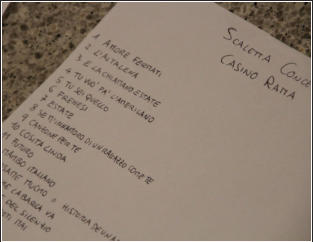 SCALETTA CONCE
CASINO RAMA
1 AMORE FERMATI
2 L'ALTALENA
3 E LA CHIAMANO ESTATE
4 TU VUO' FA' L'AMERICANO
5 TU SEI QUELLO
6 FRENESI
7 ESTATE
8 SE TI INNAMORI DI UN RAGAZZO COME TE
9 CANZONE PER TE
10 COSITA LINDA
11 FUTURO
MAMBO ITALIANO
MUCHO o HISTORIA DE UN A
LA BARCA VA
DEL SILENZIO